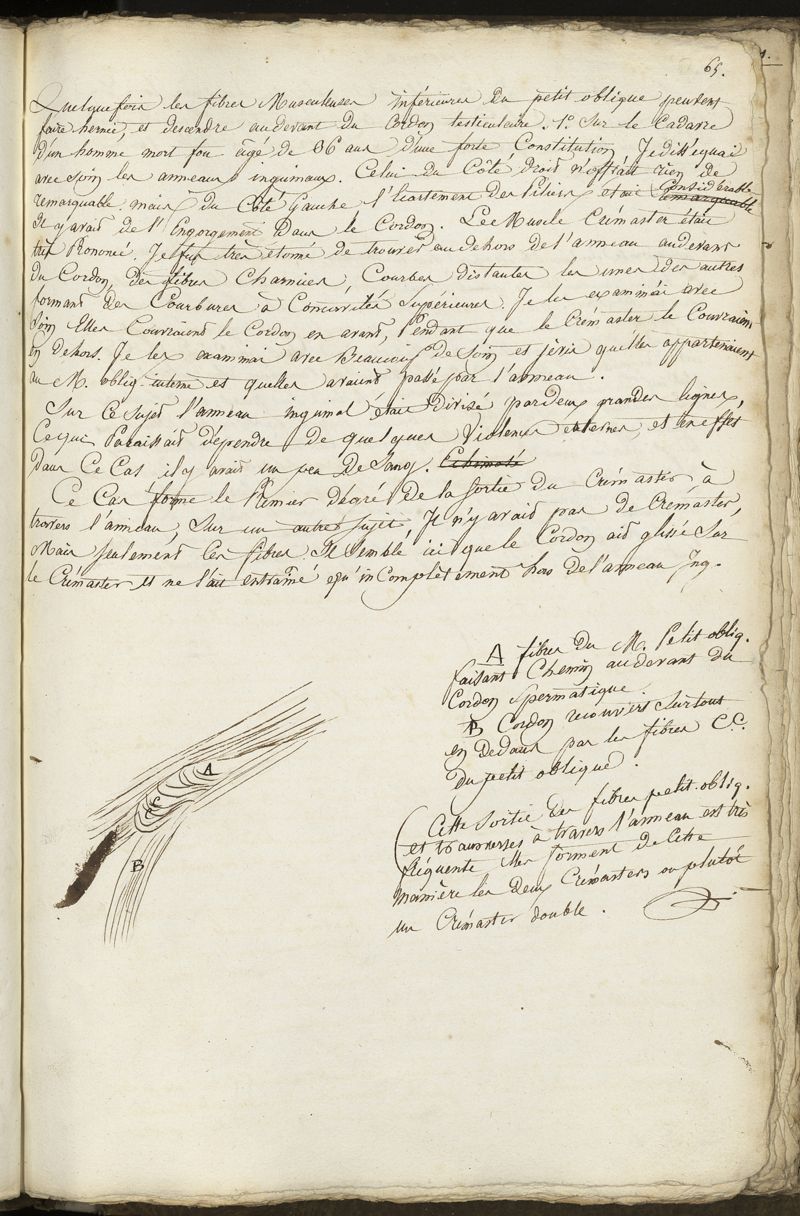 65.
1.
Quelquefois les fibres Musculeuses inférieures du petit oblique peuvent
faire hernie, et descendre audevant du Cordon testiculaire. 1º. Sur le Cadavre
d'un homme mort fou âgé de 36 ans d'une forte Constitution Je disséquai
avec Soin les anneaux inguinaux. Celui du Côté droit n'offrait rien de
remarquable. mais du Côté Gauche l'Ecartement des Piliers était Considérable remarquable
Il y avait de l'Engorgement Dans le Cordon. Le Muscle Crémaster était
très Prononcé. Je fus très étonné de trouver en dehors de l'anneau audevant
du Cordon, des fibres Charnues, Courbes distantes les unes des autres
formant des Courbures à Concavités Supérieures. Je les examinai avec
Soin Elles Couvraient le Cordon en avant, Pendant que le Crémaster le Couvraient
en dehors. Je les examinai avec Beaucoup de Soin et je vis quelles appartenaient
au M. obliq. interne et quelles avaient passé par l'anneau.
Sur ce Sujet l'anneau inguinal était divisé par deux grandes lignes,
Ce qui Paraissait dépendre de quelques Violences externes, et en effet
Dans Ce Cas il y avait un peu de Sang.
Ce Cas forme le Premier dégré de la Sortie du Crémaster à
travers l'anneau, Sur un autre Sujet, Il n'y avait pas de Crémaster,
Mais Seulement Ces fibres. Il Semble ici que le Cordon ait glissé Sur
le Crémaster et ne l'ait entraîné qu'inComplètement hors de l'anneau Ing.
A fibres du M. Petit obliq.
faisant Chemin audevant du
Cordon Spermatique.
B Cordon recouvert Surtout
en Dedans par les fibres C.C.
du petit oblique.
(Cette Sortie des fibres petit-obliq.
et transverses à travers l'anneau est très
fréquente elles forment de Cette
manière les deux Crémasters ou plutôt
un Crémaster double.
A
C
C
B